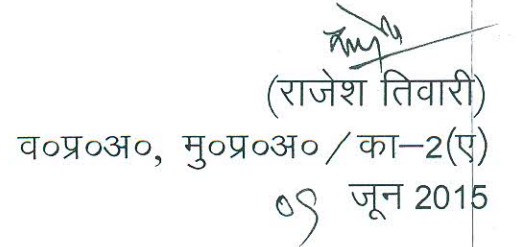 (राजेश तिवारी)
व०प्र०अ०, मु०प्र०अ० / का–2(ए)
०९ जून 2015